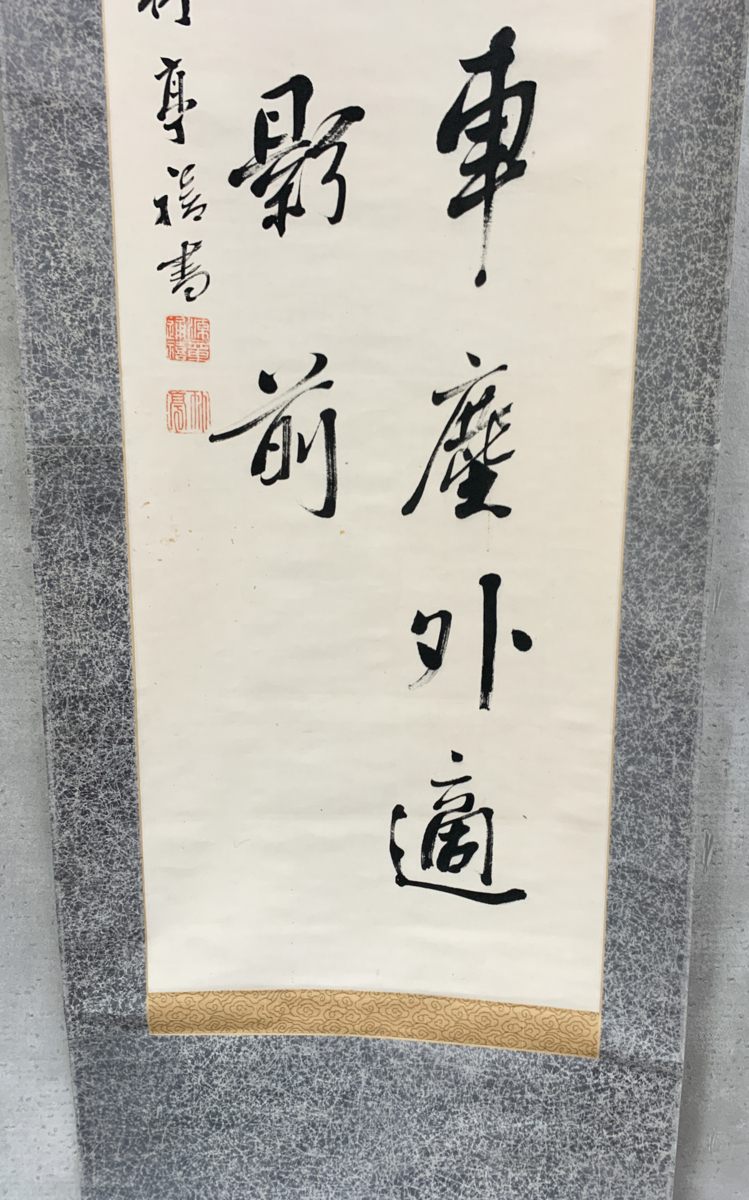 車塵外適
影前
亭禧書